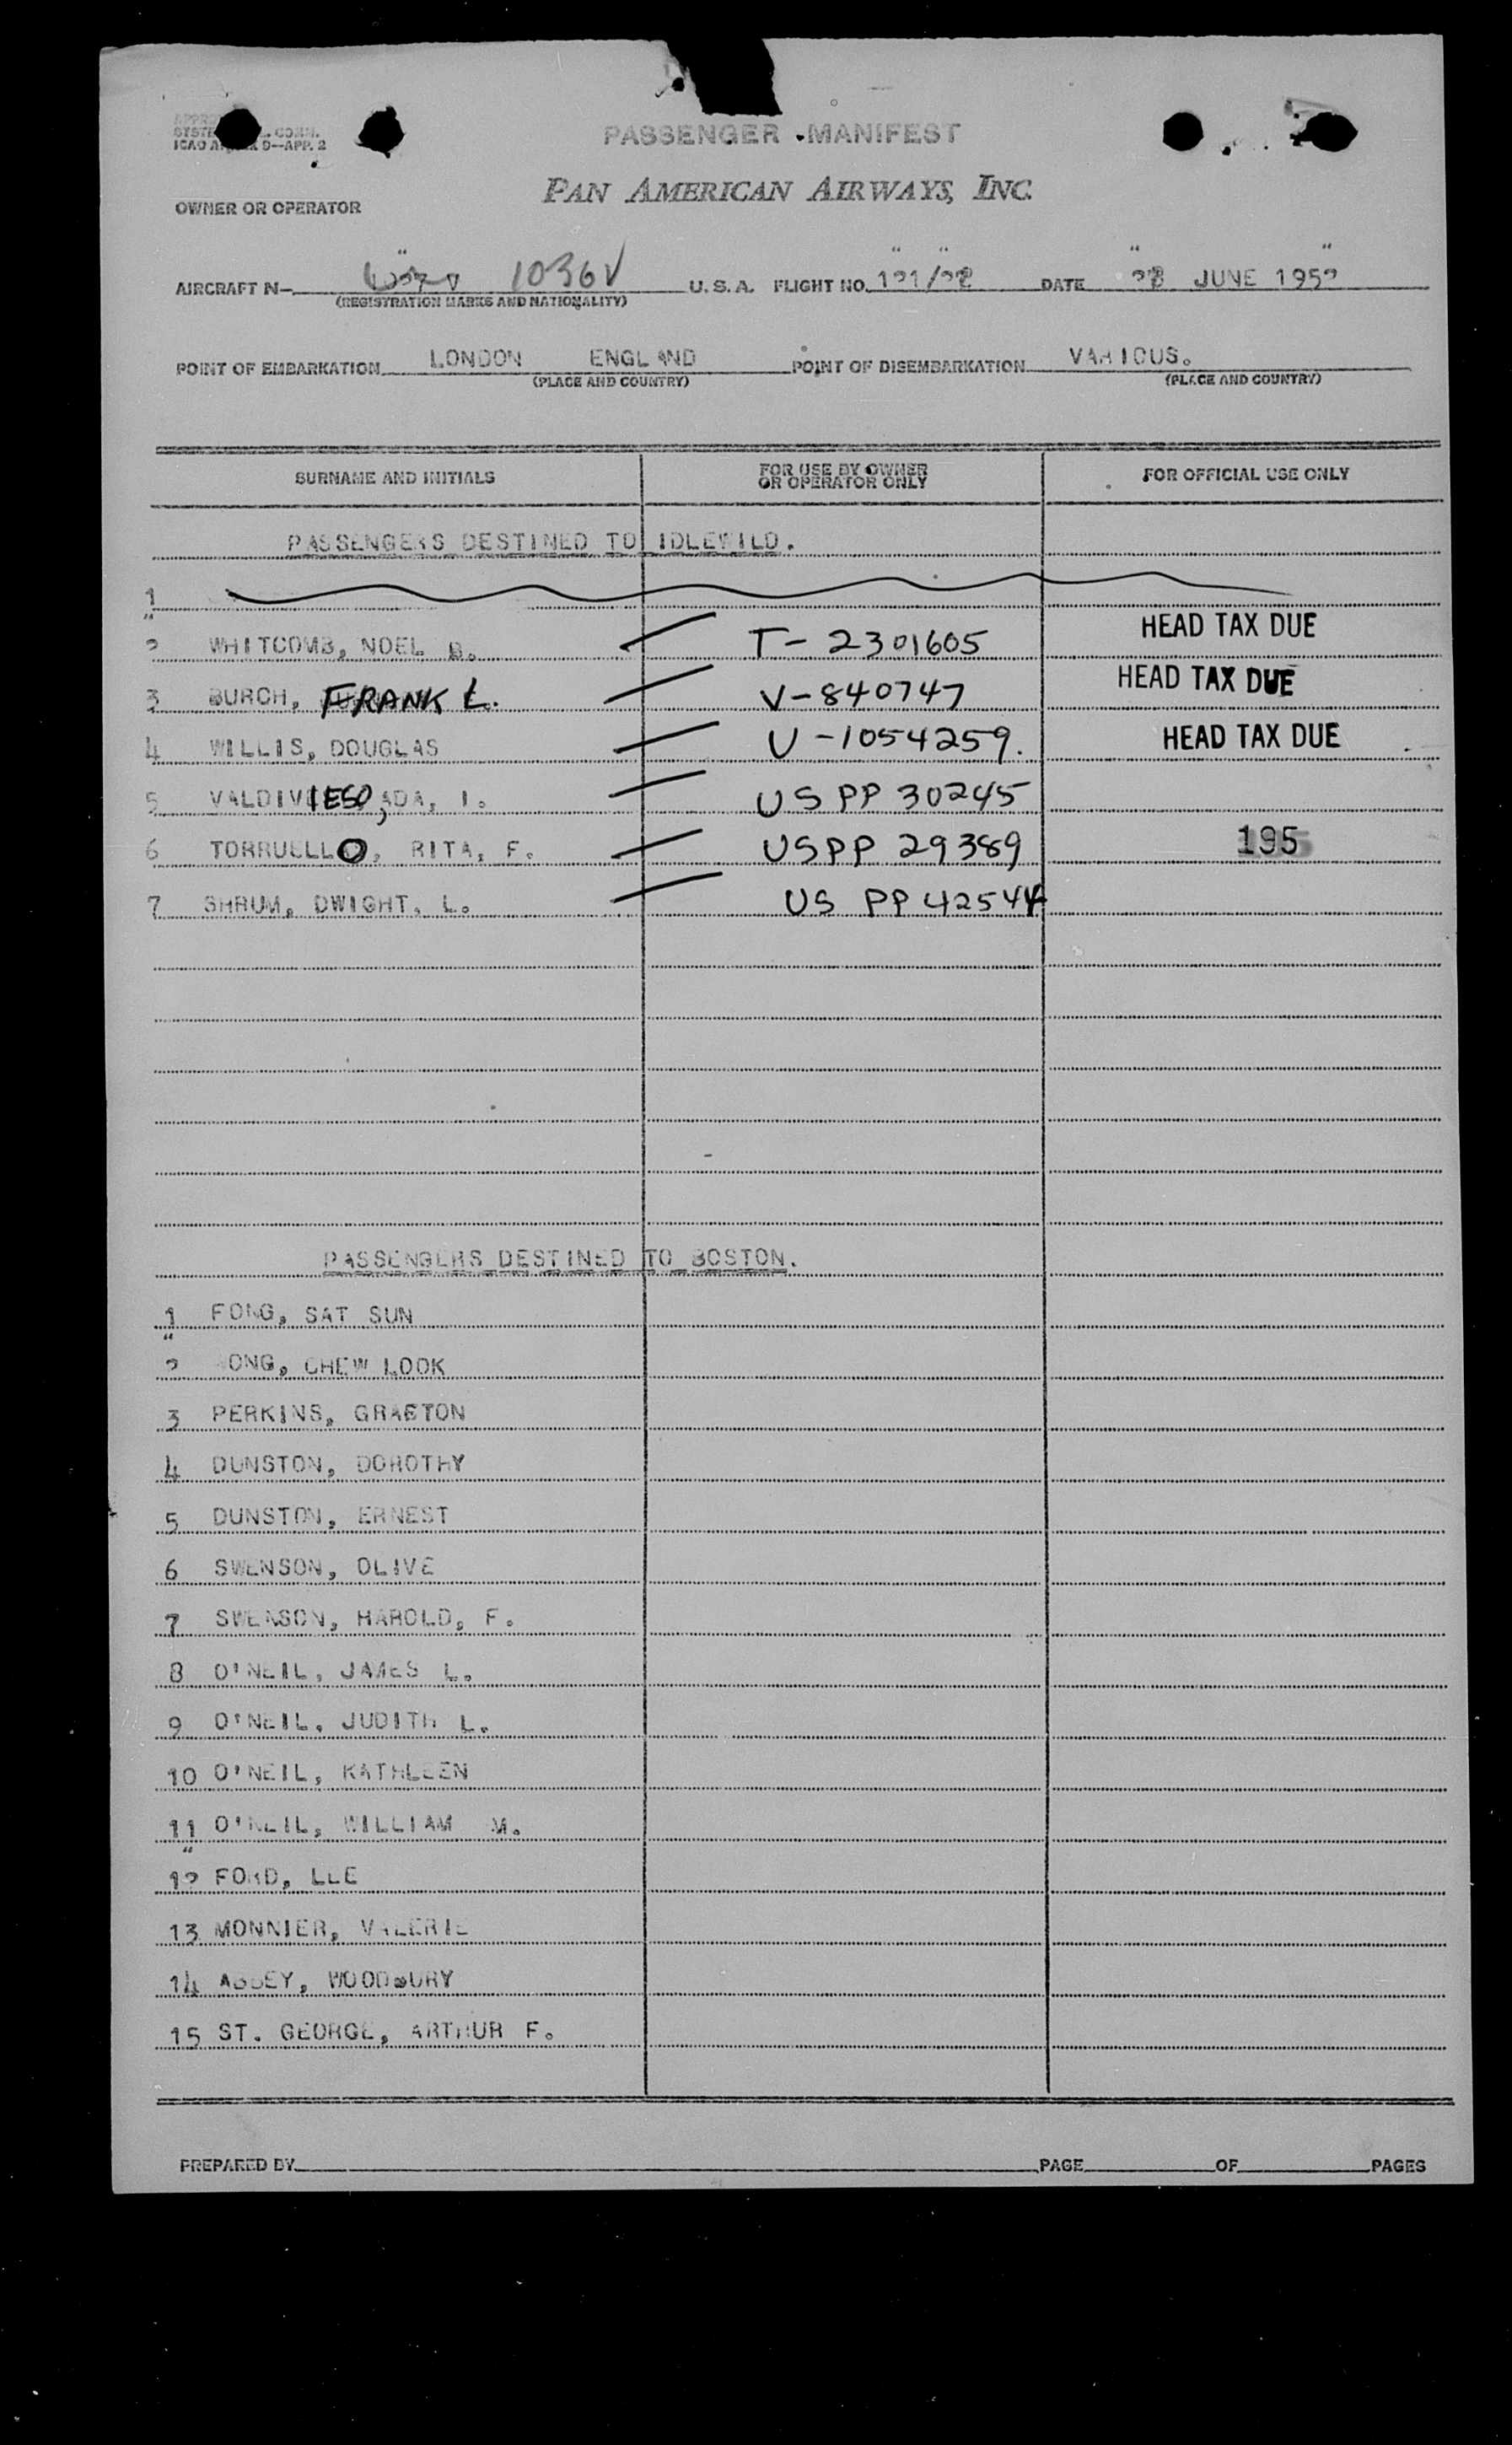 ICAO A 9—APP. 2
PASSENGER MANIFEST
PAN AMERICAN AIRWAYS, INC.
OWNER OR OPERATOR
AIRCRAFT N— 1036V U.S.A. FLIGHT NO. 121/28 DATE 28 JUNE 1952
(REGISTRATION MARKS AND NATIONALITY)
POINT OF EMBARKATION LONDON ENGLAND POINT OF DISEMBARKATION VARIOUS.
(PLACE AND COUNTRY) (PLACE AND COUNTRY)
SURNAME AND INITIALS FOR USE BY OWNER OR OPERATOR ONLY FOR OFFICIAL USE ONLY
PASSENGERS DESTINED TO IDLEWILD.
1
2 WHITCOMB, NOEL B. T-2301605 HEAD TAX DUE
3 BURCH, FRANK L. V-840747 HEAD TAX DUE
4 WILLIS, DOUGLAS V-1054259. HEAD TAX DUE
5 VALDIVIESO, ADA, I. US PP 30245
6 TORRUELLO, RITA, F. US PP 29389 195
7 SHRUM, DWIGHT, L. US PP 42544
PASSENGERS DESTINED TO BOSTON.
1 FONG, SAT SUN
2 ONG, CHEW LOOK
3 PERKINS, GRAFTON
4 DUNSTON, DOROTHY
5 DUNSTON, ERNEST
6 SWENSON, OLIVE
7 SWENSON, HAROLD, F.
8 O'NEIL, JAMES L.
9 O'NEIL, JUDITH L.
10 O'NEIL, KATHLEEN
11 O'NEIL, WILLIAM M.
12 FORD, LEE
13 MONNIER, VALERIE
14 ABBEY, WOODBURY
15 ST. GEORGE, ARTHUR F.
PREPARED BY PAGE OF PAGES